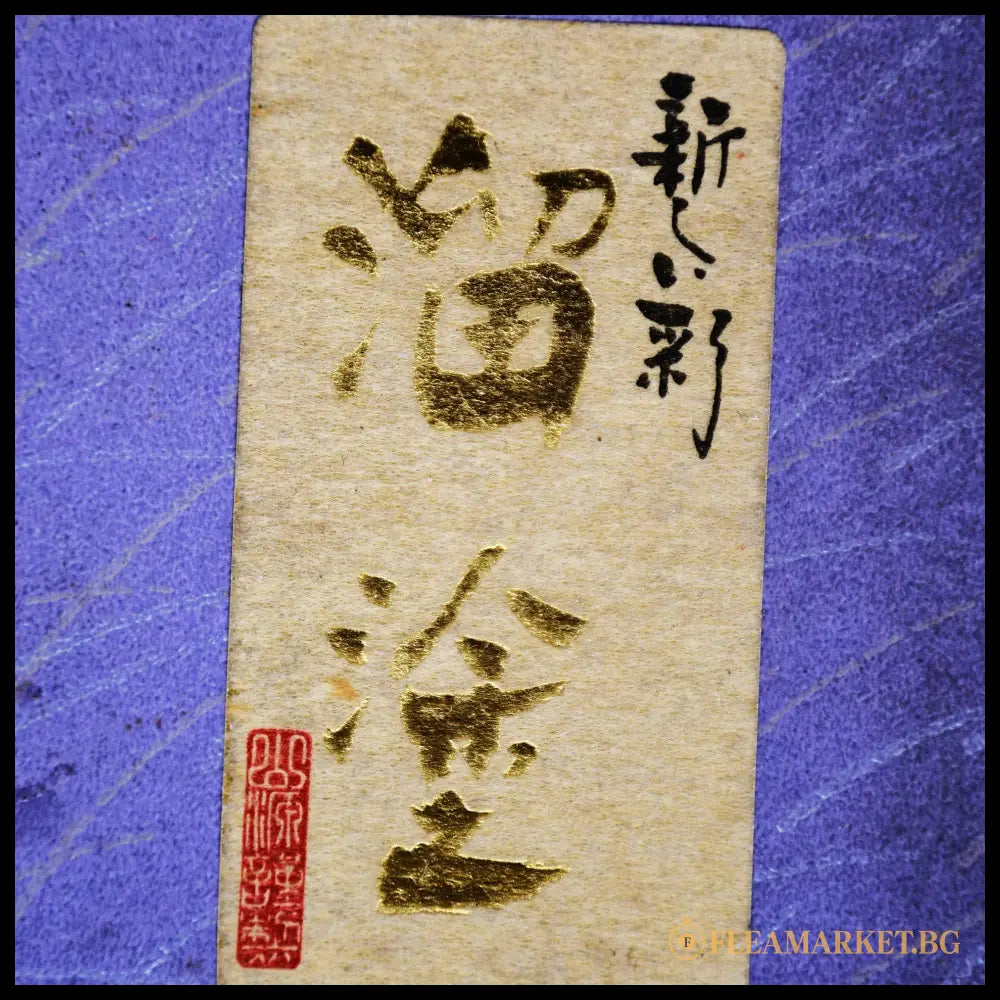 新しい彩
溜塗
FLEAMARKET.BG